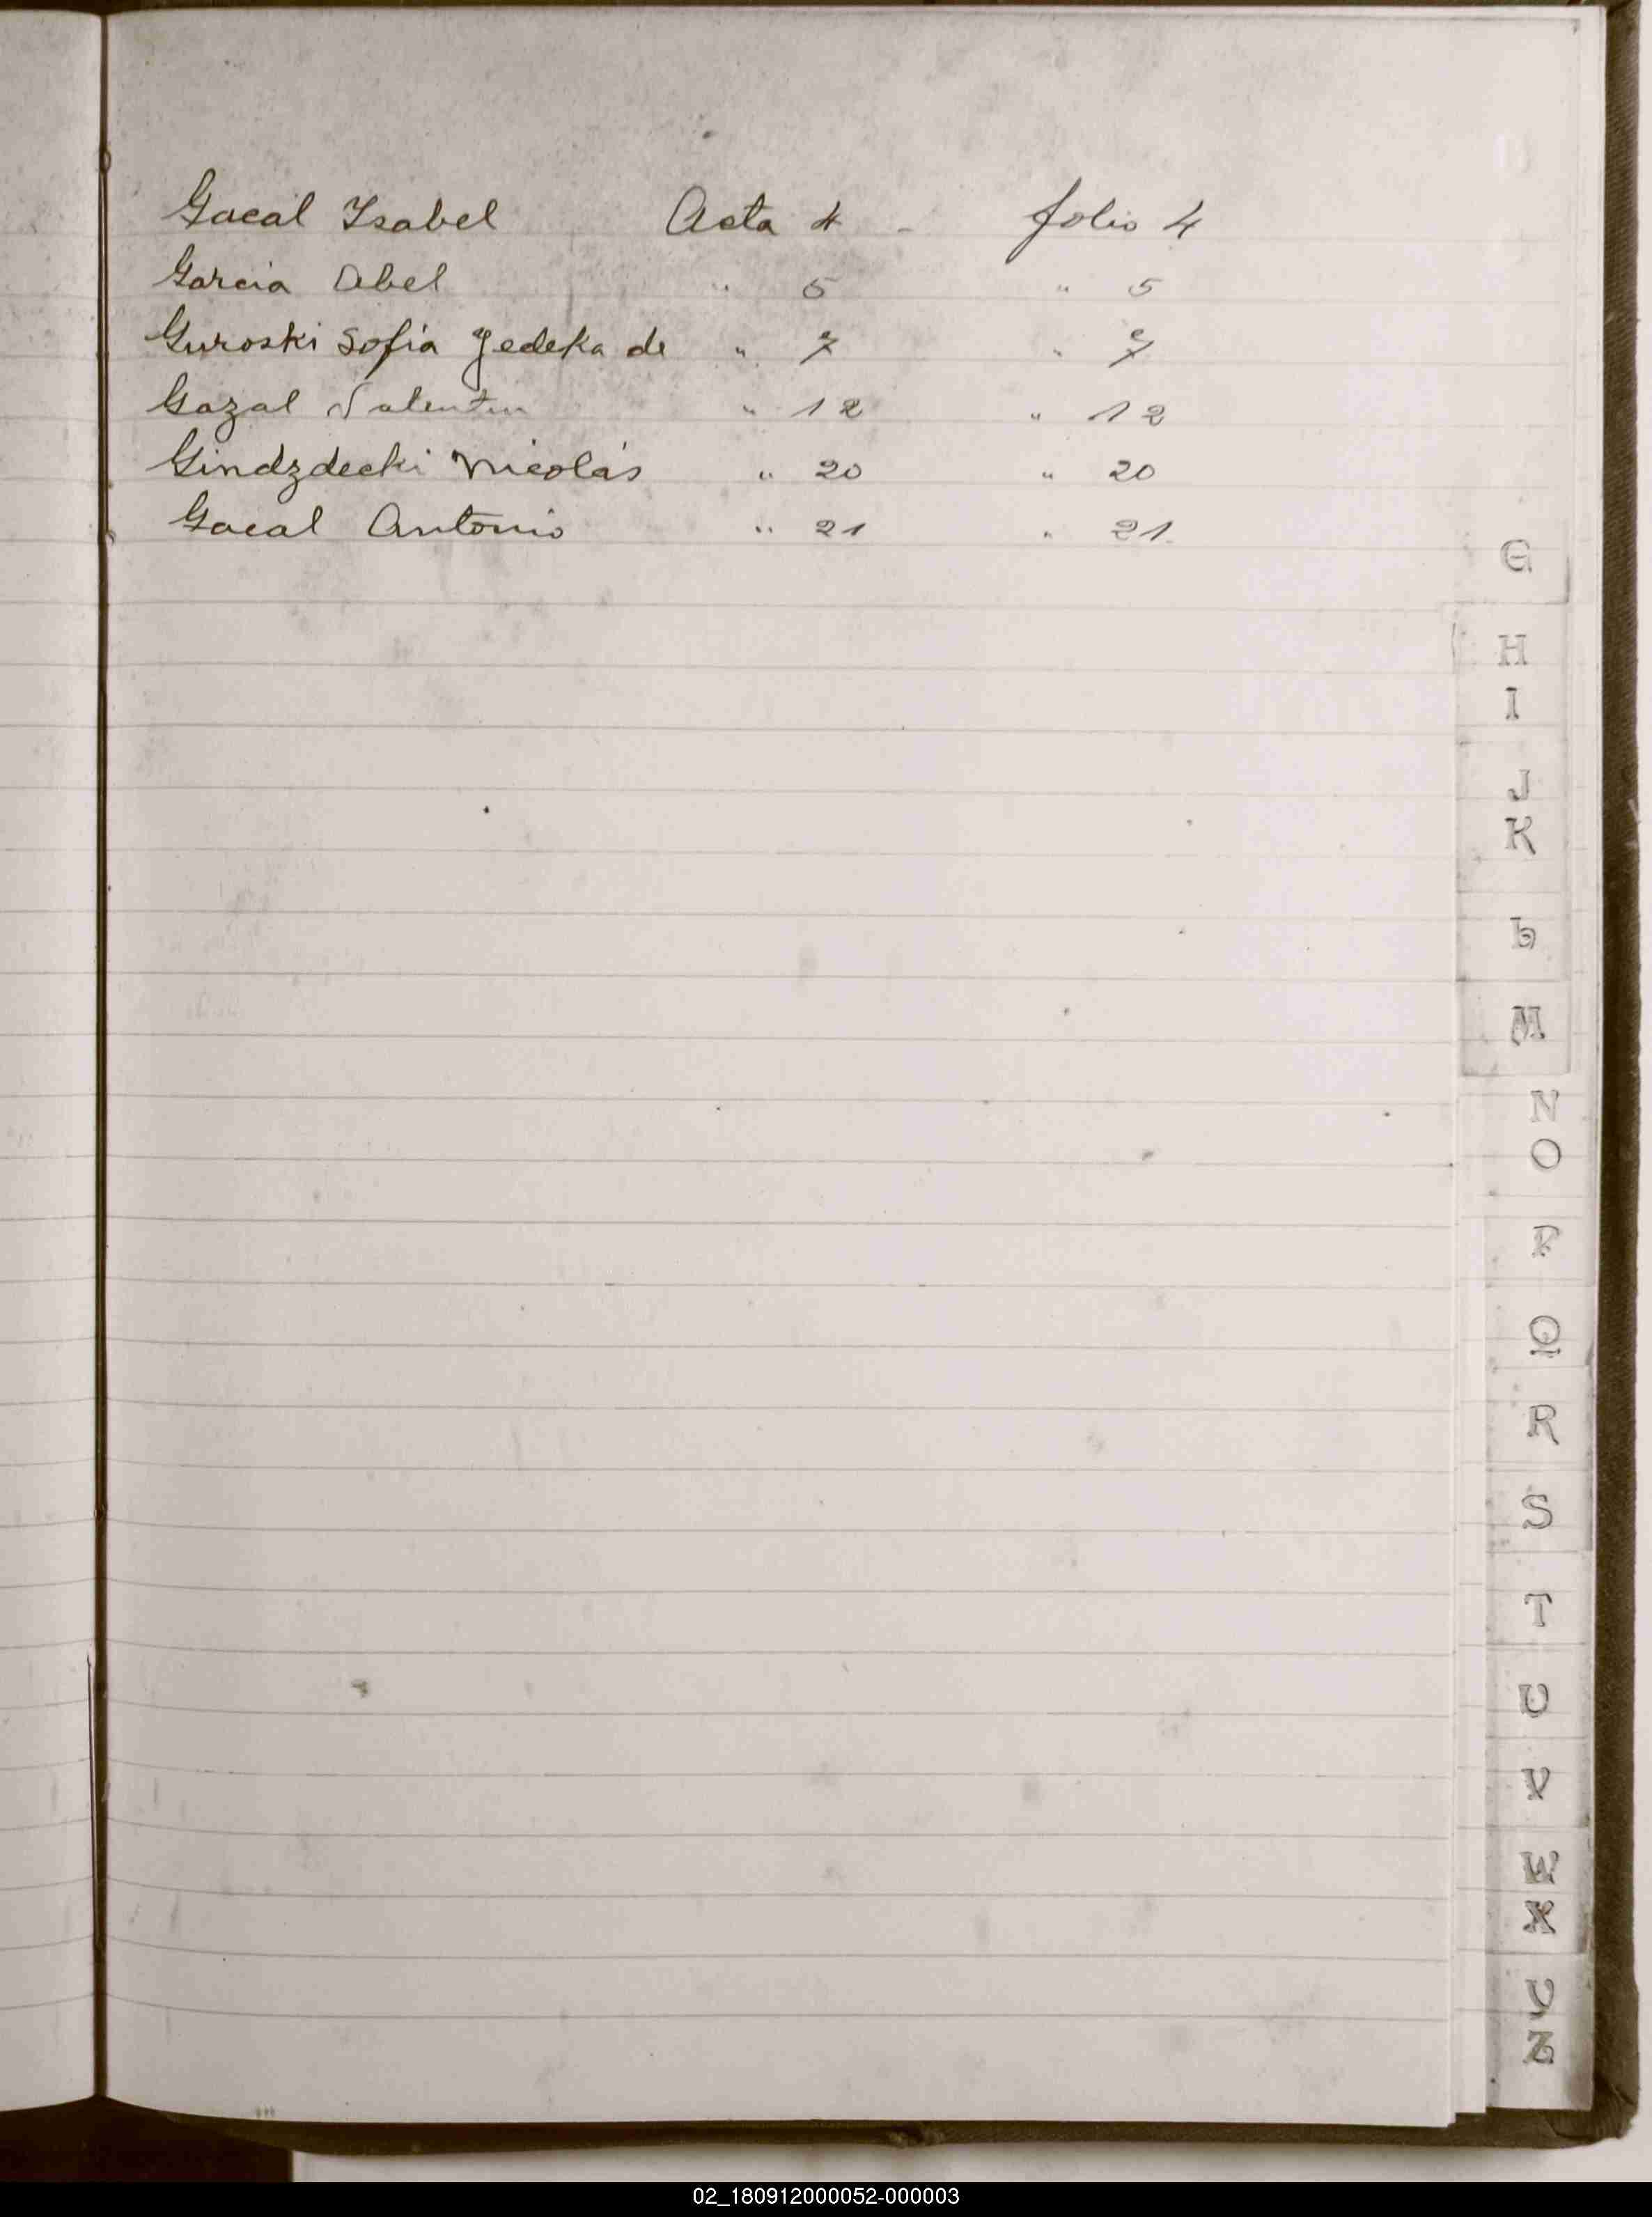 Gacal Isabel Acta 4 - folio 4
Garcia Abel " 5 " 5
Guroski Sofia Jedeka de " 7 " 7
Gazal Valentin " 12 " 12
Gindzdecki Nicolás " 20 " 20
Gacal Antonio " 21 " 21
G
H
I
J
K
L
M
N
O
P
Q
R
S
T
U
V
W
X
Y
Z
02_180912000052-000003